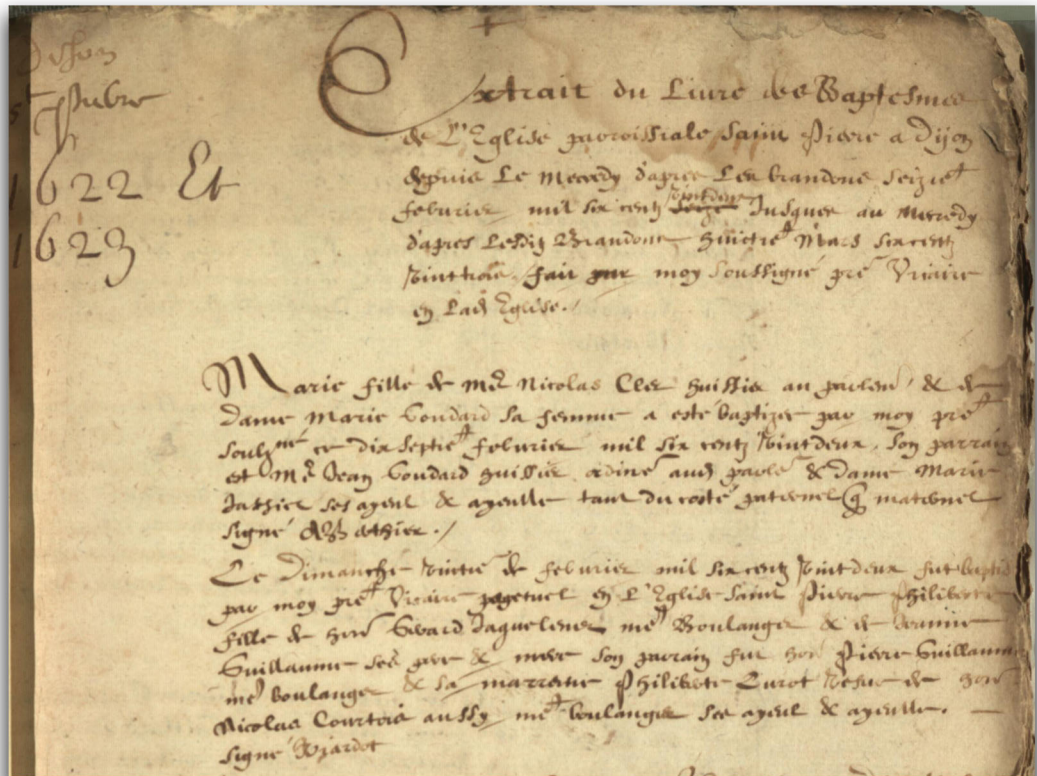 Dijon
St Pierre
1622 Et
1623
Extrait du Livre des Baptesmes
de L'Eglise paroissiale Saint Pierre a Dijon
depuis Le Mecredy d'apres Les brandons seizie
febvrier mil six centz vint deux Jusques au Mecredy
d'apres Lesditz Brandons huictie Mars six centz
vint trois. fait par moy soussigné pre Vicaire
en Lad Eglise.
Marie fille de Me Nicolas Cler huissier au parlem, & de
Dame Marie Goudard sa femme a esté baptizee par moy pre
soubzné ce dix septie febvrier mil six centz vint deux, son parrain
est Me Jean Goudard huissier ordine aud parle & Dame Marie
Jathier ses ayeul & ayeulle tant du costé paternel que maternel
signé
Le Dimanche vintie de febvrier mil six centz vint deux fut baptis
par moy pre Vicaire perpetuel en L'Eglise Saint Pierre Philiberte
fille de hon Edvard Jaquelener me Boulanger & de Jeanne
Guillaume ses pere & mere son parrain fut hon Pierre Guillaume
me boulanger & sa marreine Philiberte Curot vesve de hon
Nicolas Courtois aussy me boulanger ses ayeul & ayeulle.
signé